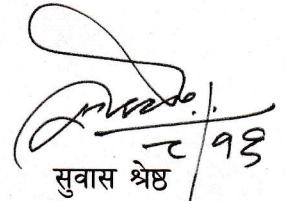 ८/१६
सुवास श्रेष्ठ